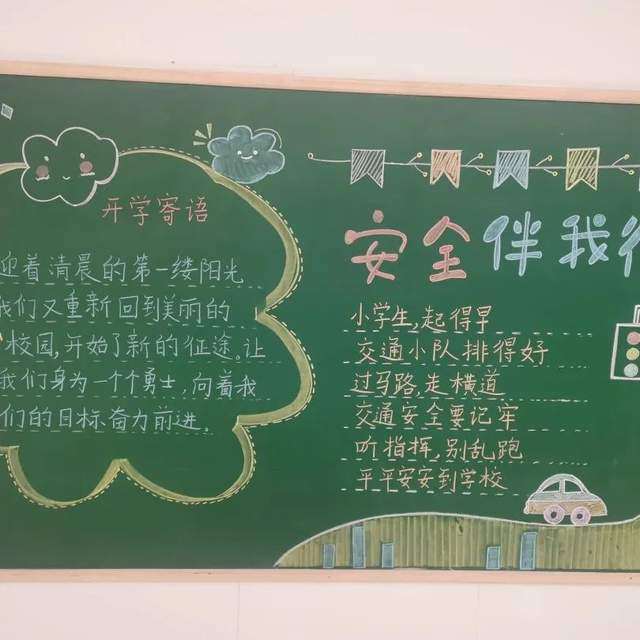 开学寄语
迎着清晨的第一缕阳光
我们又重新回到美丽的
校园,开始了新的征途。让
我们身为一个个勇士,向着我
们的目标奋力前进.
安全伴我行
小学生,起得早
交通小队排得好
过马路,走横道
交通安全要记牢
听指挥,别乱跑
平平安安到学校